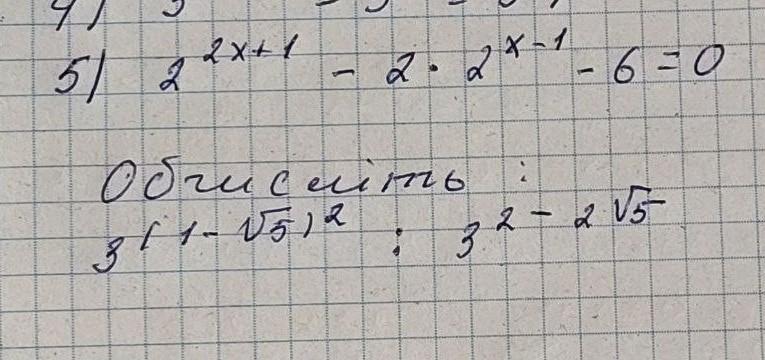 5) 2^(2x+1) - 2 · 2^(x-1) - 6 = 0
Обчисліть :
3^(1-√5)² : 3^(2-2√5)